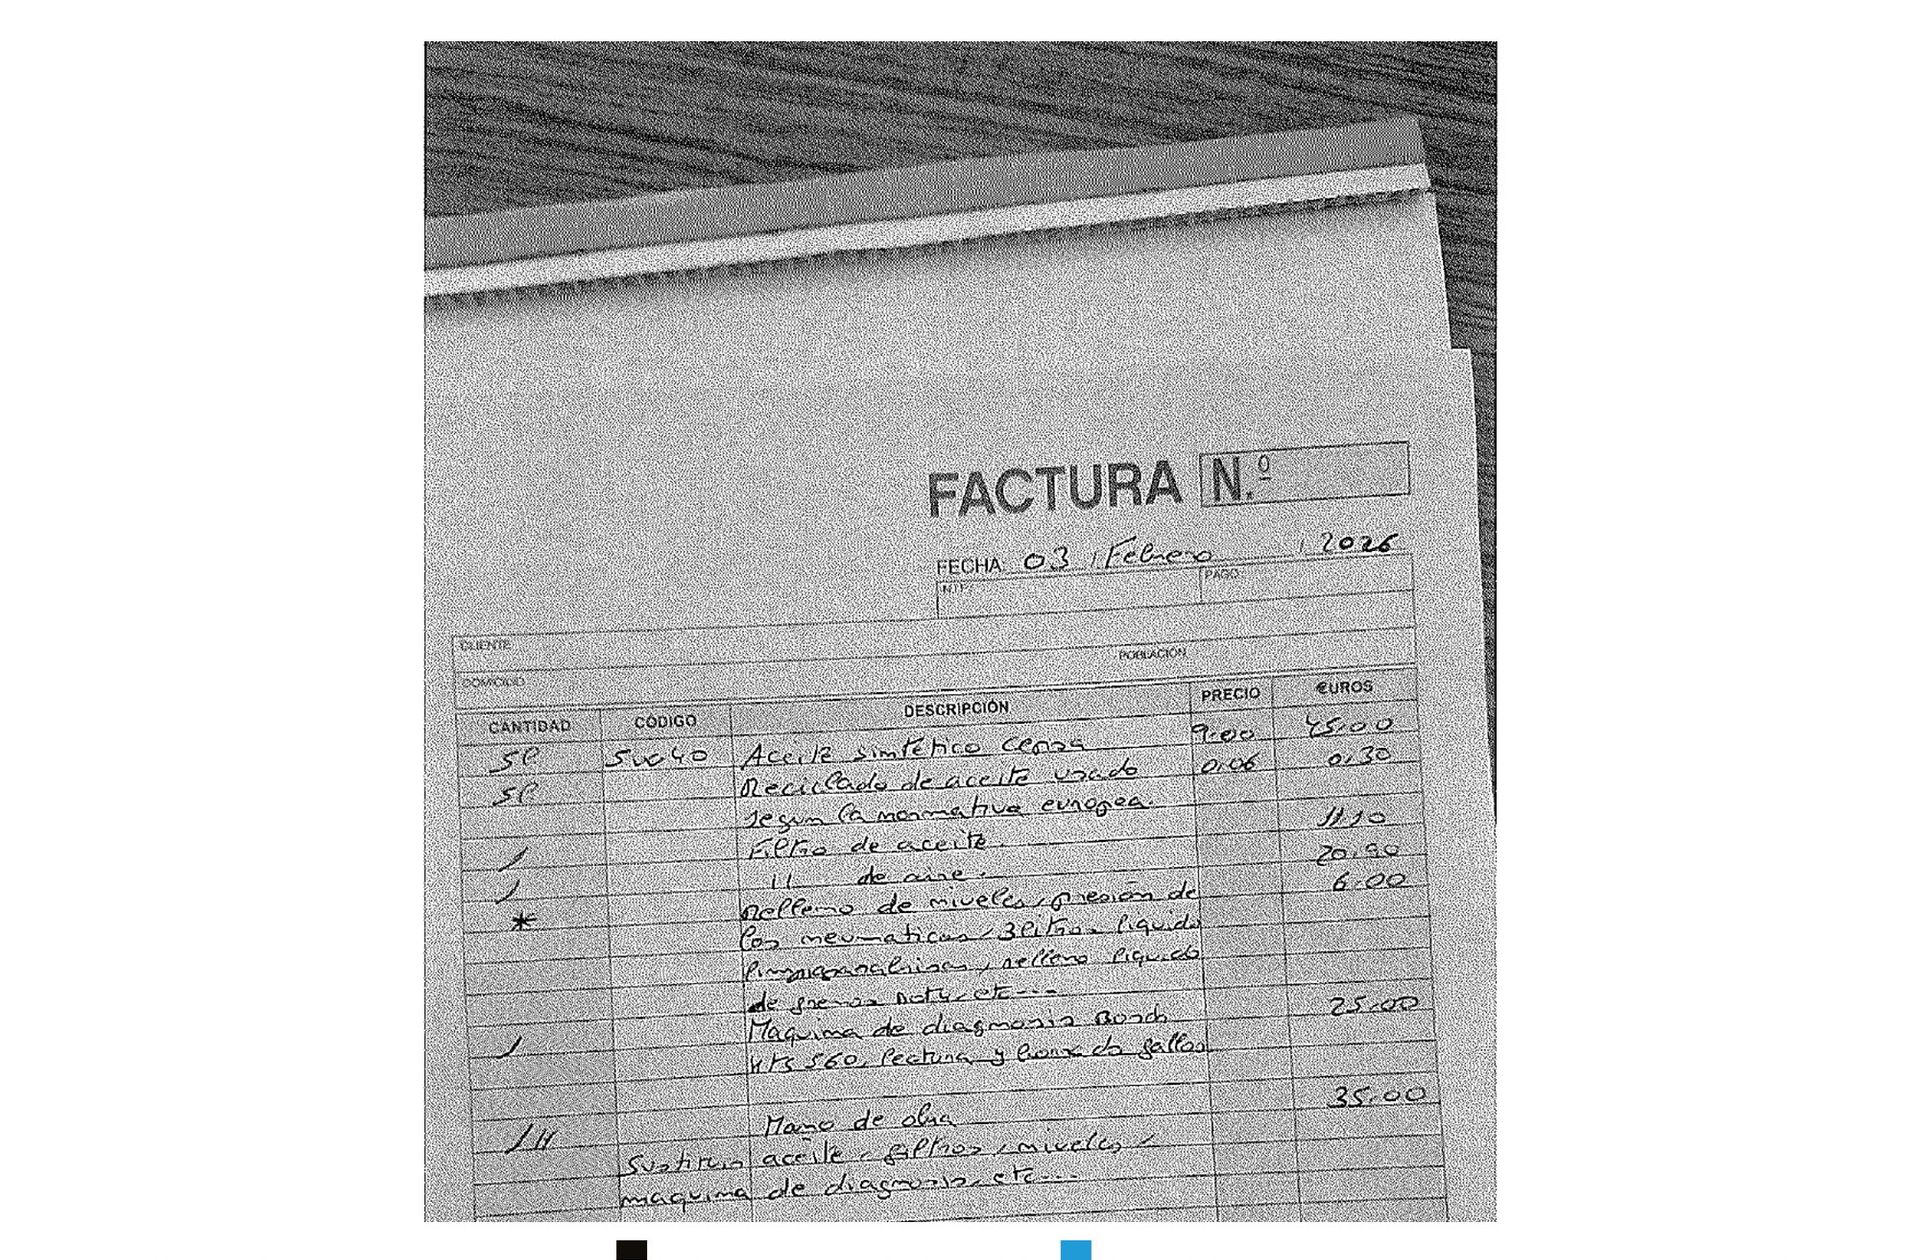 FACTURA N.º
FECHA 03 / Febrero / 2026
N.I.F. PAGO
CLIENTE
POBLACIÓN
DOMICILIO
CANTIDAD CÓDIGO DESCRIPCIÓN PRECIO €UROS
5l 5W40 Aceite sintético 9.00 45.00
5l Reciclado de aceite usado 0.06 0.30
segun la normativa europea.
1 Filtro de aceite. 11.10
1 11 de aire. 20.90
* Relleno de niveles, presion de 6.00
los neumaticos, 3 litros liquido
relleno liquido
de frenos etc...
1 Maquina de diagnosis Bosch 25.00
KTS 560, lectura y borrado fallos
1H Mano de obra 35.00
Sustituir aceite, filtros, niveles,
maquina de diagnosis, etc...